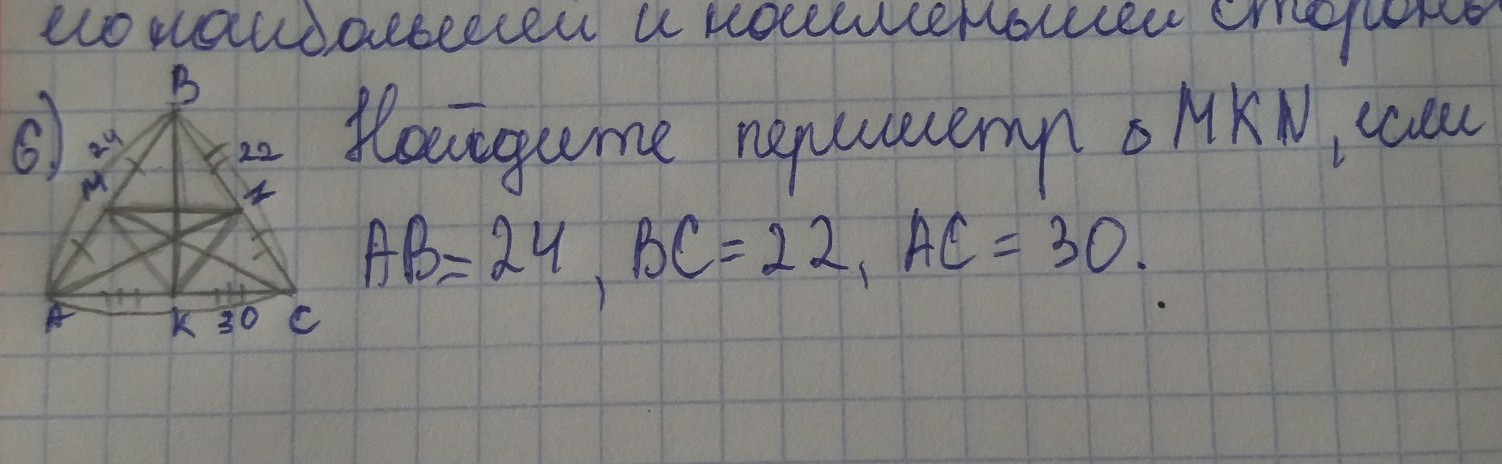 наибольшей и наименьшей стороны
6)
B
24
22
M
N
A
K
30
C
Найдите периметр △ MKN, если
AB = 24, BC = 22, AC = 30.